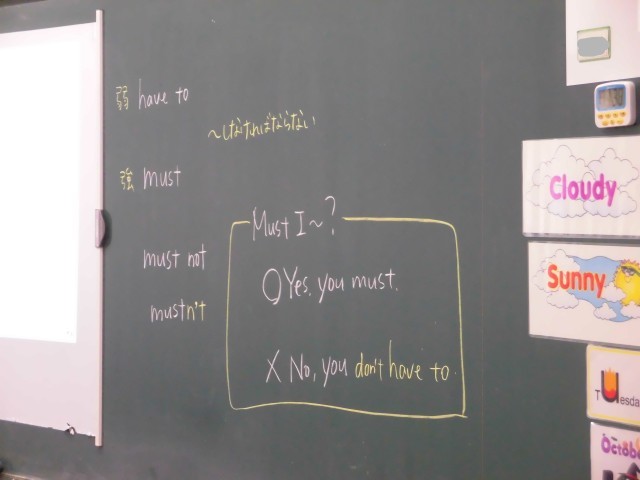 弱 have to
～しなければならない
強 must
must not
mustn't
Must I ～?
○ Yes, you must.
X No, you don't have to.
Cloudy
Sunny
Tuesda
Octobe